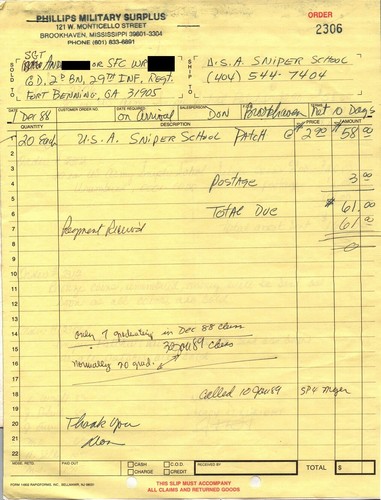 PHILLIPS MILITARY SURPLUS
121 W. MONTICELLO STREET
BROOKHAVEN, MISSISSIPPI 39601-3304
PHONE (601) 833-6891
ORDER
2306
SOLD TO
SGT
or SFC
C.D. 2D BN, 29TH INF. Regt.
FORT BENNING, GA 31905
SHIP TO
U.S.A SNIPER SCHOOL
(404) 544-7404
DATE
Dec 88
CUSTOMER ORDER NO.
DATE REQUIRED
on arrival
SALESPERSON
DON
Brookhaven
TERMS
Net 10 Days
QUANTITY
DESCRIPTION
PRICE
AMOUNT
1 20 Each U.S.A. SNIPER SCHOOL PATCH @ $2.90 $58.00
2
3
4 Postage 3.00
5
6 TOTAL DUE $61.00
7 Payment Received 61.00
8 0
9
10
11
12
13
14 only 7 graduating in Dec 88 class
15 Jan 89 class
16 normally 20 grad.
17
18 called 10 Jan 89 SP4 Meyer
19
20 Thank you
21 Don
22
MDSE. RETD.
PAID OUT
CASH
C.O.D.
CHARGE
CREDIT
RECEIVED BY
TOTAL $
THIS SLIP MUST ACCOMPANY
ALL CLAIMS AND RETURNED GOODS